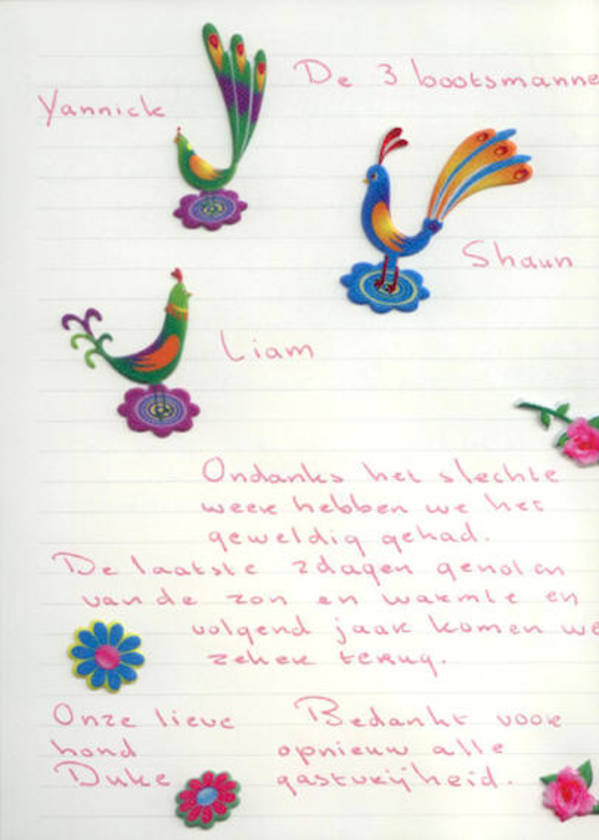 De 3 bootsmanne
Yannick
Shaun
Liam
Ondanks het slechte
weer hebben we het
geweldig gehad.
De laatste 2dagen genoten
van de zon en warmte en
volgend jaar komen we
zeker terug.
Onze lieve
hond
Duke
Bedankt voor
opnieuw alle
gastvrijheid.